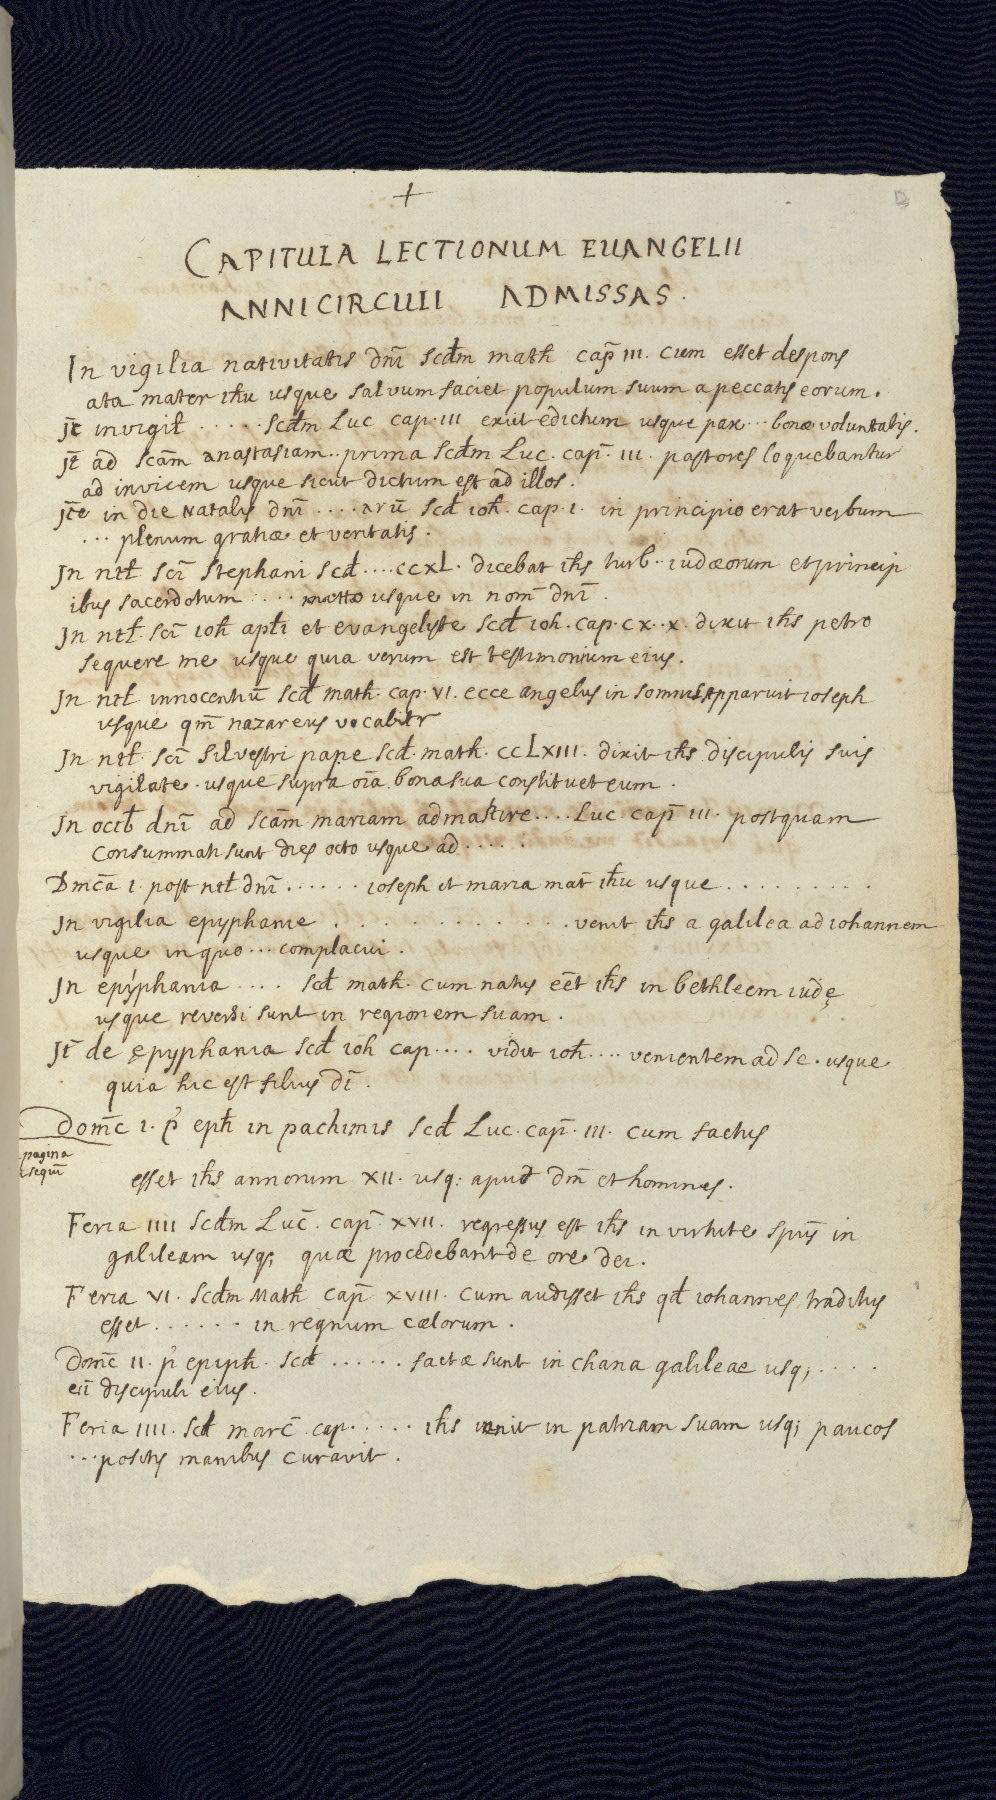 +
CAPITULA LECTIONUM EUANGELII
ANNI CIRCULI ADMISSAS.
In vigilia nativitatis dnī scđm math cap̄ III. cum esset despons
ata mater ihu usque salvum faciet populum suum a peccatis eorum.
jt̄ in vigil ..... scđm Luc cap. III exiit edictum usque pax ... bonæ voluntatis.
jt̄ ad scām anastasiam .. prima scđm Luc. cap̄. III. pastores loquebantur
ad invicem usque sicut dictum est ad illos.
jt̄e in die natalis dnī .... arū scđ ioh. cap. I. in principio erat verbum
... plenum gratiæ et veritatis.
In ntł scī stephani scđ .... CCXL. dicebat ihs turb .. iudæorum et princip
ibus sacerdotum .... usque in nom̄ dnī.
In ntł. scī ioh apłi et evangelyste scđ ioh. cap. CX..X. dixit ihs petro
sequere me usque quia verum est testimonium eius.
In ntł innocentiū scđ math. cap. VI. ecce angelus in somnis apparuit ioseph
usque qm̄ nazareus vocabitr
In ntł. scī silvestri pape scđ. math. CCLXIII. dixit ihs discipulis suis
vigilate. usque supra oīa bona sua constituet eum.
In octb dnī ad scām mariam admastire .... Luc cap̄ III. postquam
consummati sunt dies octo usque ad .....
Dmc̄a I. post ntł dnī ...... ioseph et maria mat̄ ihu usque ..........
In vigilia epyphanie ............ venit ihs a galilea ad iohannem
usque in quo ... complacui.
In epyphania .... scđ math. cum natus eēt ihs in bethleem iudę
usque reversi sunt in regionem suam.
Jt̄ de ępyphania scđ ioh cap .... vidit ioh .... venientem ad se. usque
quia hic est filius dī.
Dom̄c I. p̄ eph in pachimis scđ Luc. cap̄. III. cum factus
pagina
sequī
esset ihs annorum XII. usq: apud dm̄ et homines.
Feria IIII scđm Luc̄. cap̄. XVII. regressus est ihs in virtute spūs in
galileam usq; quæ procedebant de ore dei.
Feria VI. scđm Math cap̄ XVIII. cum audisset ihs qđ iohannes traditus
esset ...... in regnum cælorum.
Dom̄c II. p̄ epiph. scđ ...... factæ sunt in chana galileae usq; ....
eū discipuli eius.
Feria IIII. scđ marc̄ cap ..... ihs venit in patriam suam usq; paucos
... positis manibus curavit.